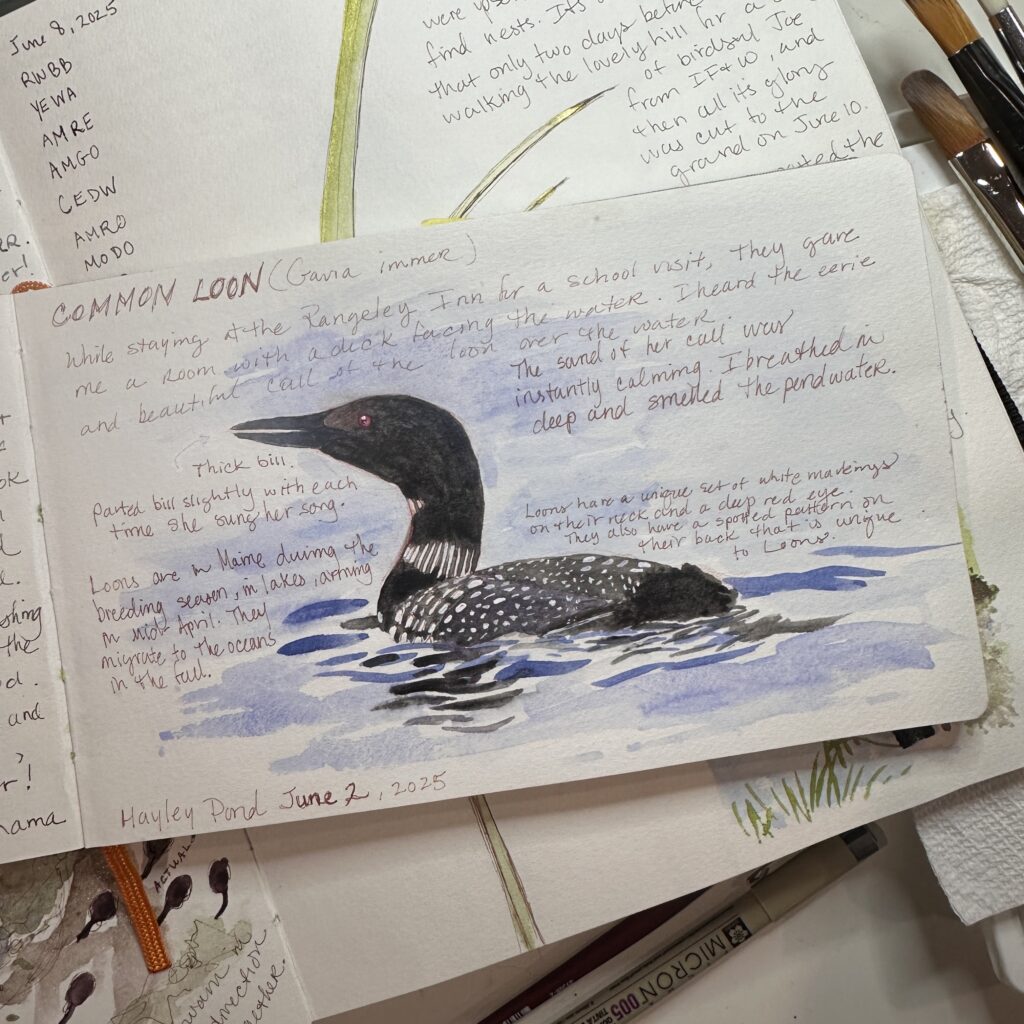 June 8, 2025
RWBB
YEWA
AMRE
AMGO
CEDW
AMRO
MODO
were
find nests. It's
that only two days before
walking the lovely hill for a
of birdsong Joe
from IF&W, and
then all its glory
was cut to the
ground on June 10.
the
COMMON LOON (Gavia immer)
While staying at the Rangeley Inn for a school visit, they gave
me a room with a deck facing the water. I heard the eerie
and beautiful call of the loon over the water.
The sound of her call was
instantly calming. I breathed in
deep and smelled the pondwater.
Thick bill.
Parted bill slightly with each
time she sung her song.
Loons have a unique set of white markings
on their neck and a deep red eye.
They also have a spotted pattern on
their back that is unique
to Loons.
Loons are in Maine during the
breeding season, in lakes, arriving
in mid April. They
migrate to the oceans
in the fall.
Hayley Pond June 2, 2025
the
and
er!
ACTUAL
direction
MICRON 005